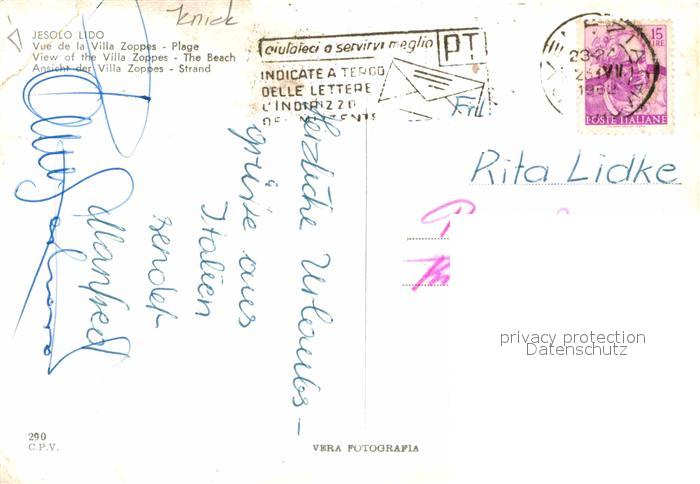 knick
JESOLO LIDO
Vue de la Villa Zoppes - Plage
View of the Villa Zoppes - The Beach
Ansicht der Villa Zoppes - Strand
aiutateci a servirvi meglio
PT
INDICATE A TERGO
DELLE LETTERE
L'INDIRIZZO
DEL MITTENTE
23-24
VII
15
LIRE
POSTE ITALIANE
Frl.
Rita Lidke
Herzliche Urlaubs-
grüsse aus
Italien
sendet
Manfred
privacy protection
Datenschutz
290
C.P.V.
VERA FOTOGRAFIA